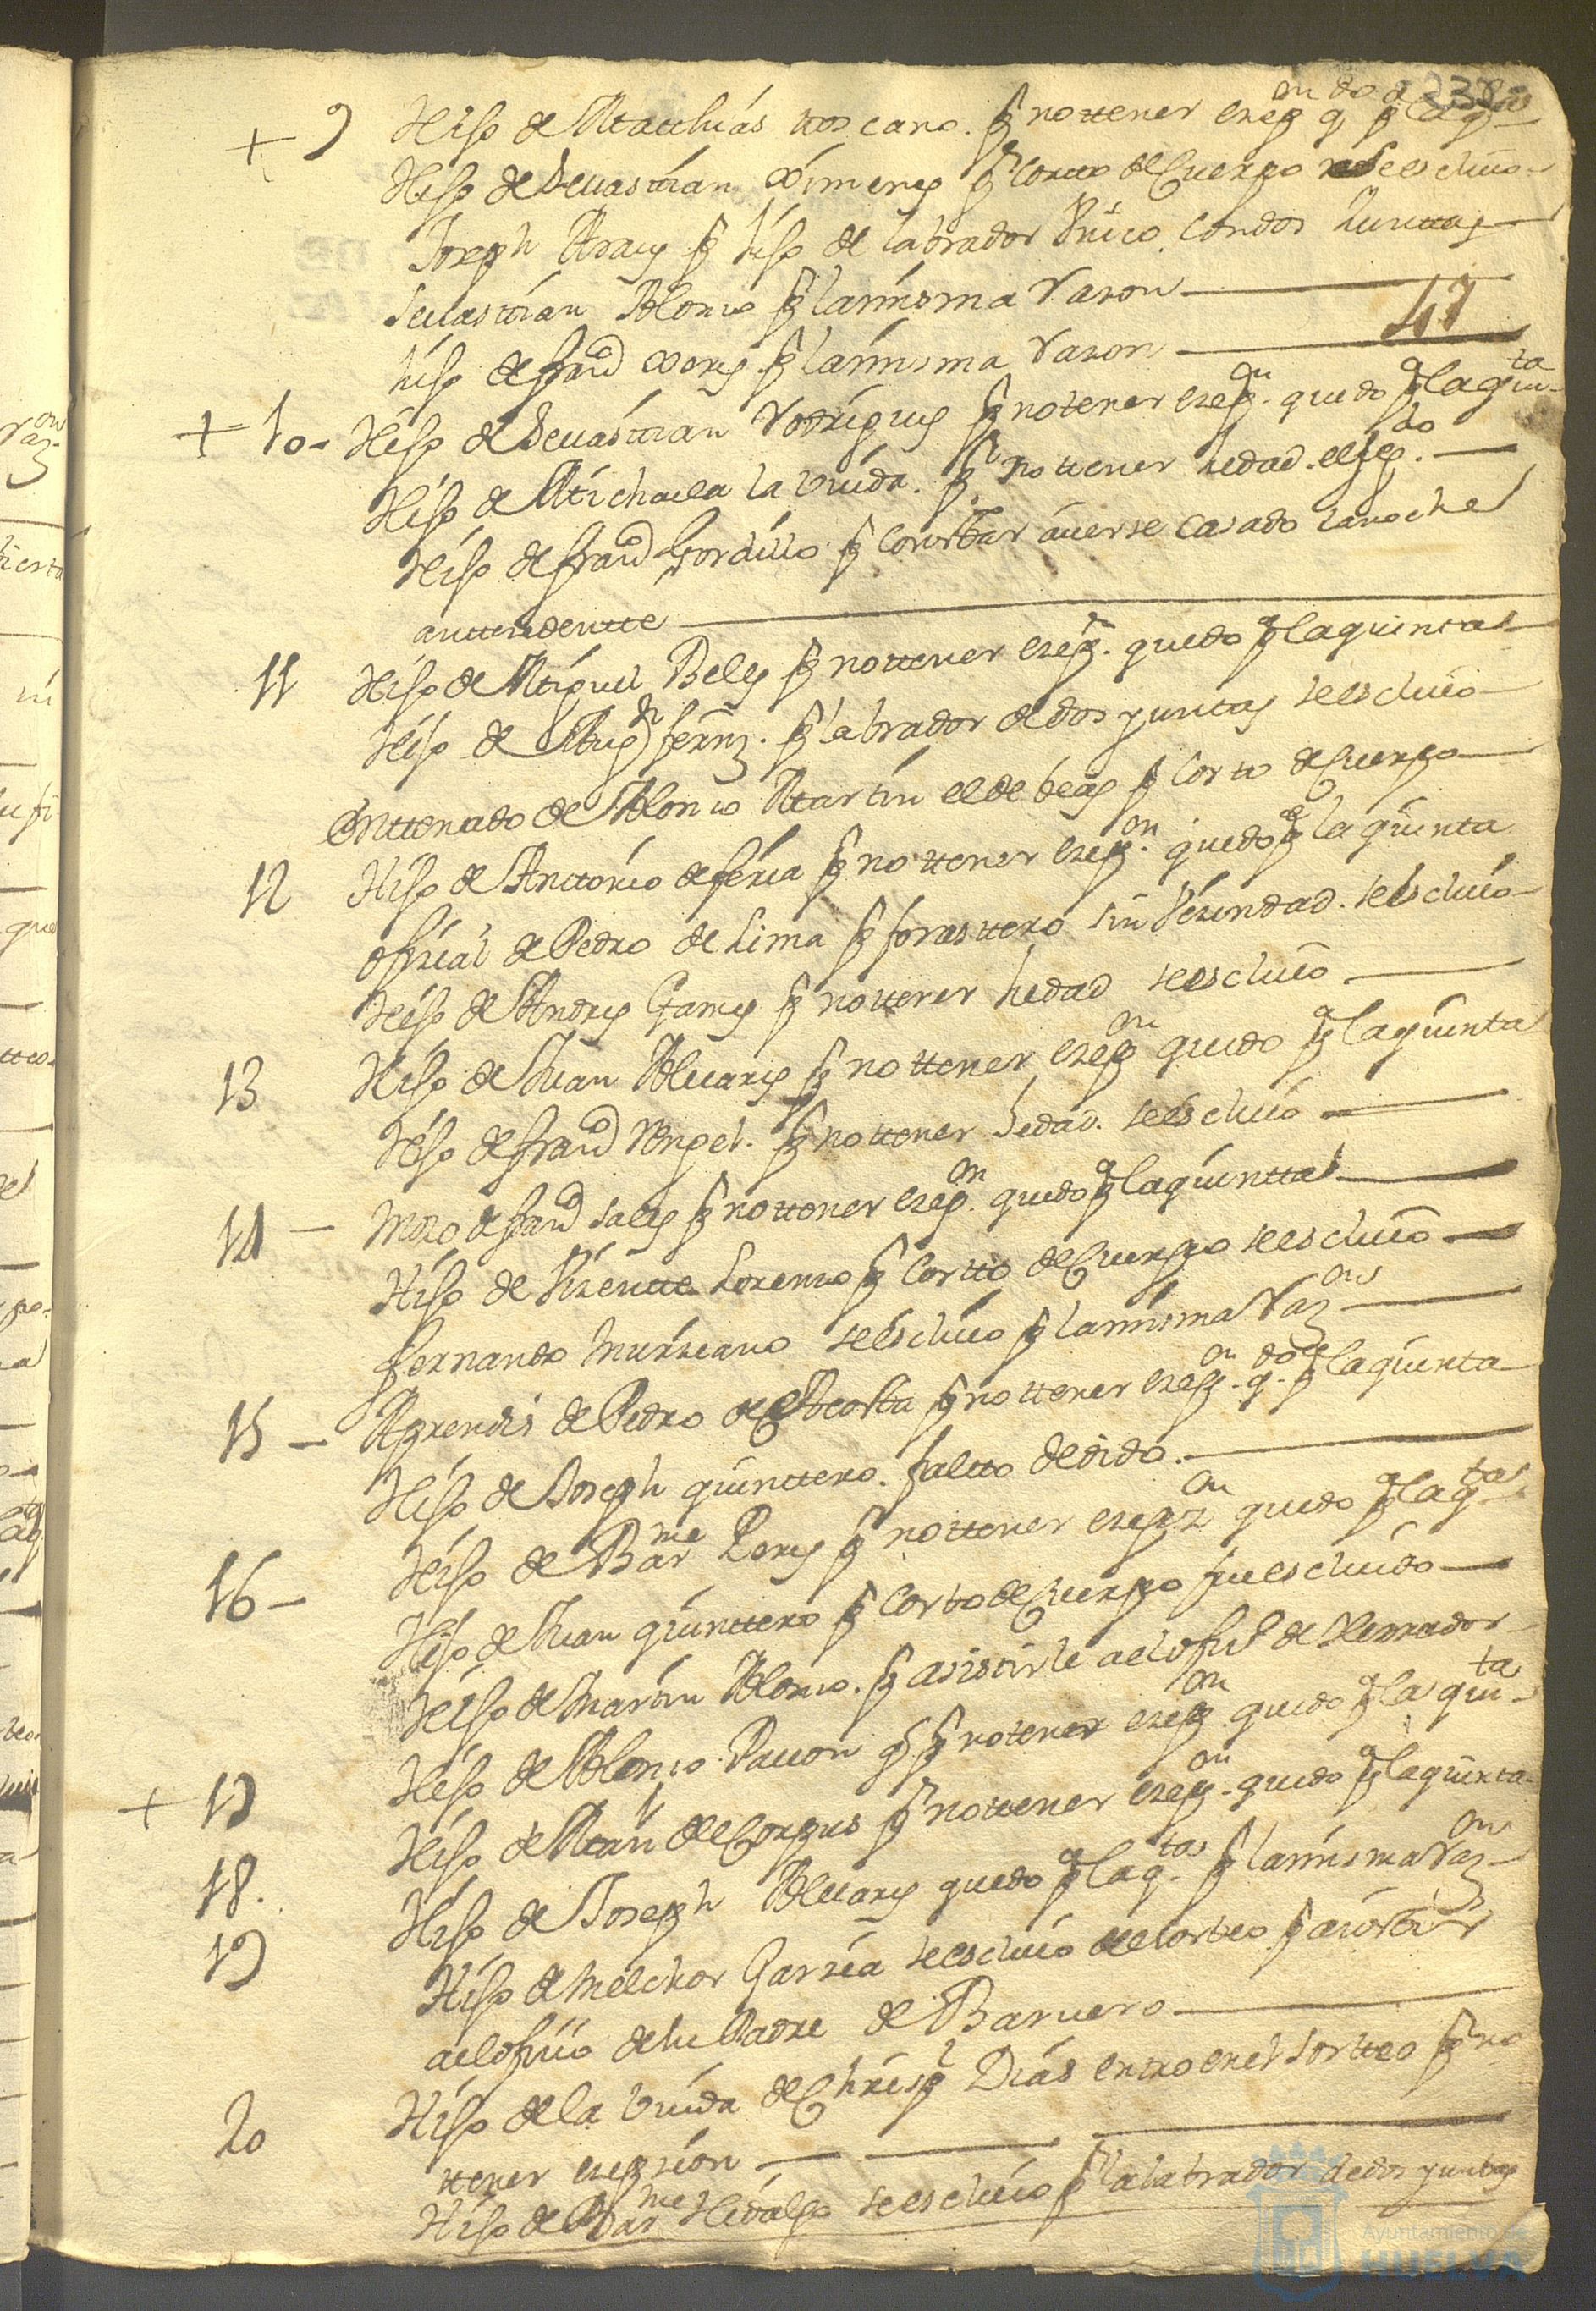 238
+ 9 Hijo de Matthias ttoscano. p.r no ttener exepon qdo pa la qta
Hijo de Sevastian Ximenes p.r Cortto de Cuerpo se escluio
Joseph p.r hijo de labrador Unico con dos Iunttas
Sevastian Alonso p.r la misma Razon
47
hijo de franco Xeres p.r la misma Razon
+ 10 - Hijo de Sevastian Rodrigues p.r no tener exepon. quedo pa la quinta
Hijo de Michaela la Viuda. p.r no ttener hedad. el sego.
Hijo de franco Gordillo p.r Constar averse casado la noche
anttesedentte
11 Hijo de Miguel Veles p.r no ttener exepn. quedo pa la quinta
Hijo de fernz. p.r labrador de dos yuntas se escluio
Enttenado de Alonso Martin el de beas p.r Corto de Cuerpo
12 Hijo de Anttonio de feria p.r no ttener exepon. quedo pa la quinta
Ofizial de Pedro de Lima p.r forasttero sin Vezindad. se escluio
Hijo de Andres Games p.r no ttener hedad se escluio
13 Hijo de Juan Alvares p.r no ttener exepon quedo pa la quinta
Hijo de franco Rangel. p.r no ttener hedad. se escluio
14 - Mozo de franco Sales p.r no ttener exepon. quedo pa la quintta
Hijo de Vizentte Lorenzo p.r Cortto de Cuerpo se escluio
fernando Murziano se escluio p.r la misma Razon
15 - Aprendis de Pedro de Acosta p.r no ttener exepon. qdo. pa la quinta
Hijo de Joseph quinttero. faltto de dido.
16 - Hijo de Barme Peres p.r no ttener exepon quedo pa la qta
Hijo de Juan quinttero p.r Corto de Cuerpo fue scluido
Hijo de Martin Alonso. p.r asistirle a el ofio de Herrador
+ 17 Hijo de Alonso Pavon q. p.r no tener exepon quedo pa la quinta
18. Hijo de Man de Corpus p.r no ttener exepon. quedo pa la quinta
19 Hijo de Joseph Alvares quedo pa la qta. p.r la misma Razon
Hijo de Melchor Garzia se escluio de el sorteo p.r asistir
a el ofizio de su Padre de Barvero
20 Hijo de la Viuda de Chrisl Dias entro en el sortteo p.r no
ttener exepzion
Hijo de Barme Hidalgo se escluio p.r labrador de dos yuntas
Ayuntamiento de
HUELVA